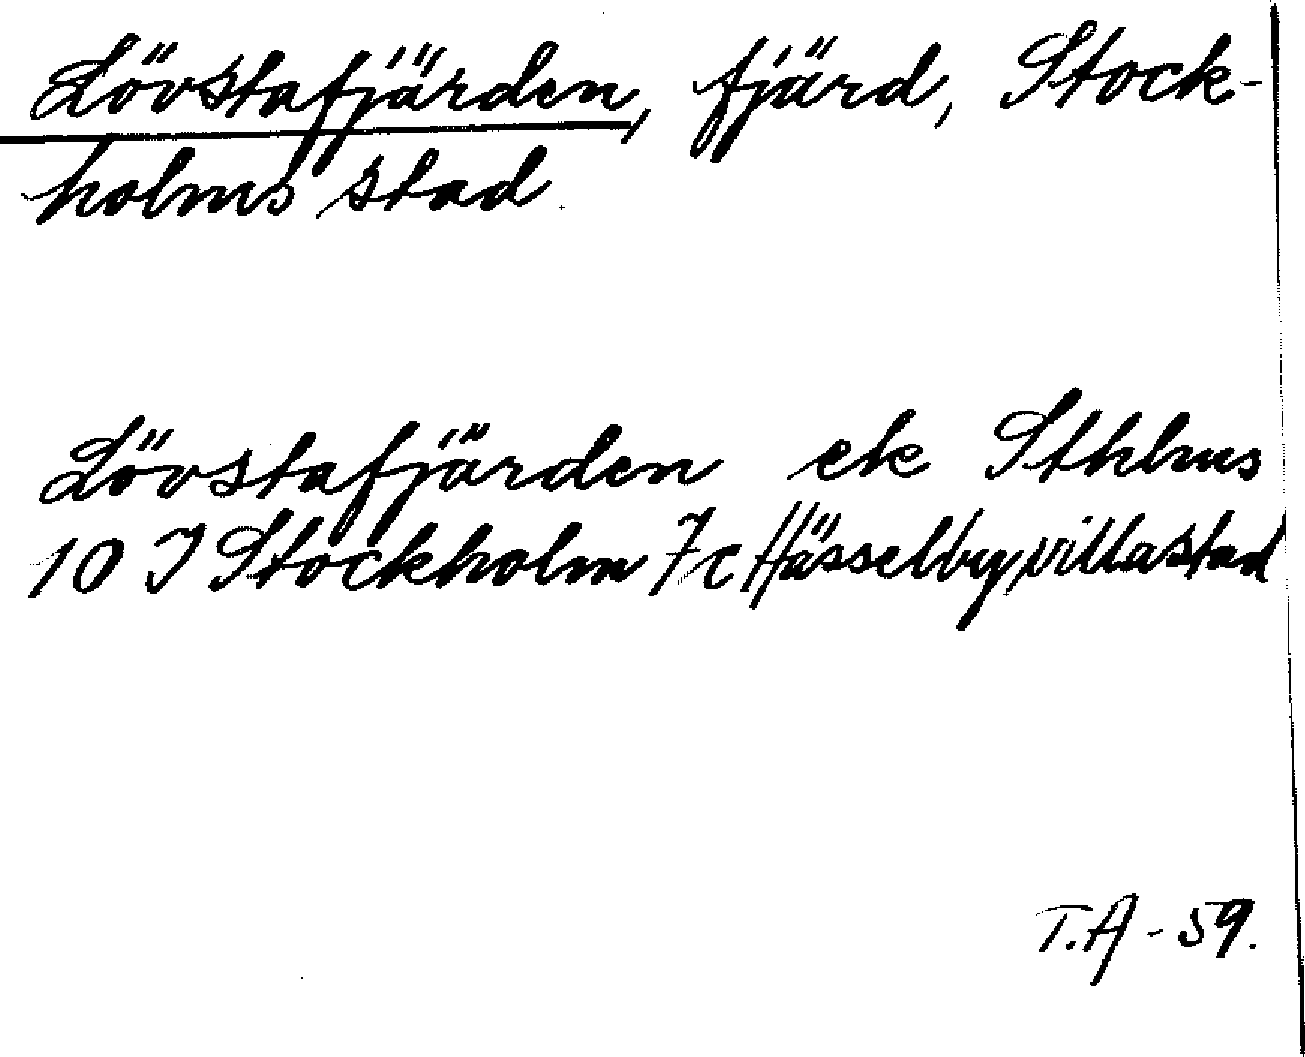 Lövstafjärden, fjärd, Stock-
holms stad.
Lövstafjärden ek Sthlms
10 I Stockholm 7c Hässelby villastad
T.A - 59.